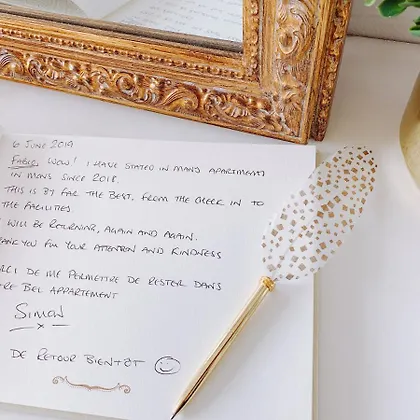 6 June 2019
Fabio, wow! I have stayed in many apartments
in Mons since 2018.
This is by far the best, from the check in to
the facilities.
I will be returning, again and again.
Thank you for your attention and kindness
rci de me permettre de rester dans
tre bel appartement
Simon
x
De retour bientôt